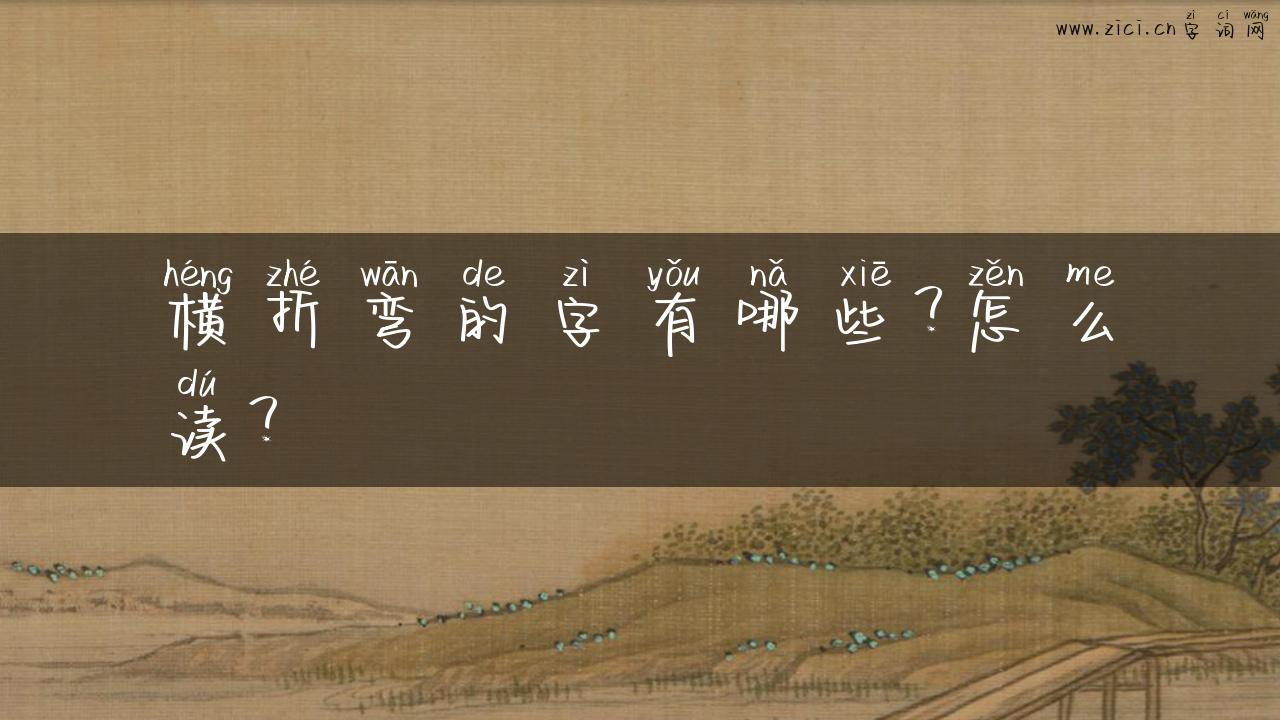 zì cí wǎng
www.zici.cn字词网
héng zhé wān de zì yǒu nǎ xiē zěn me
横折弯的字有哪些？怎么
dú
读？